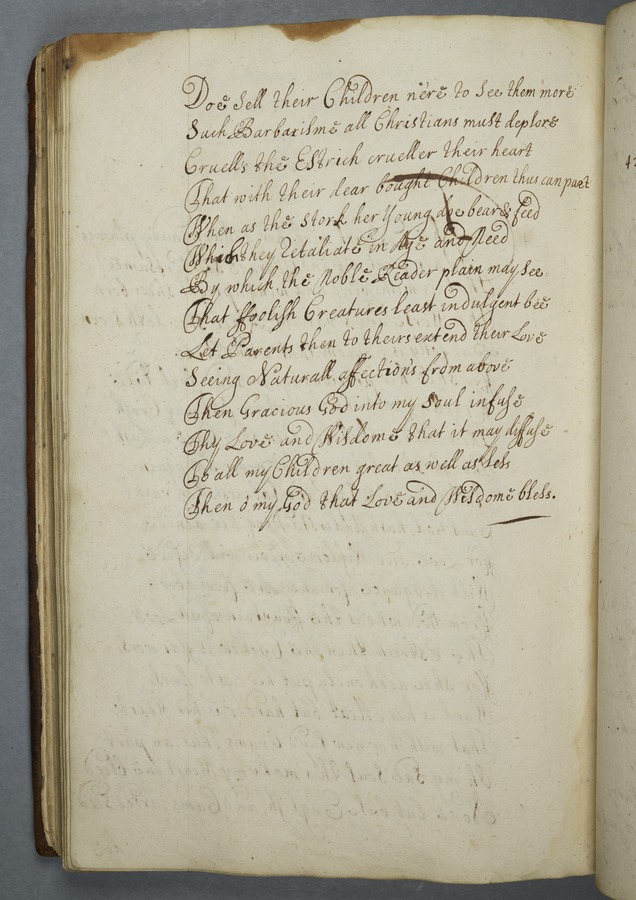 Doe sell their Children n'ere to see them more
Such Barbarisme all Christians must deplore
Cruell's the Estrich crueller their heart
That with their dear bought Children thus can part
When as the Stork her Young doe bear & feed
Which they retaliate in Age and Need
By which the Noble Reader plain may see
That ffoolish Creatures least indulgent bee
Let Parents then to theirs extend their Love
Seeing Naturall affections from above
Then Gracious God into my Soul infuse
Thy Love and Wisdome that it may diffuse
To all my Children great as well as less
Then o my God that Love and Wisdome bless.